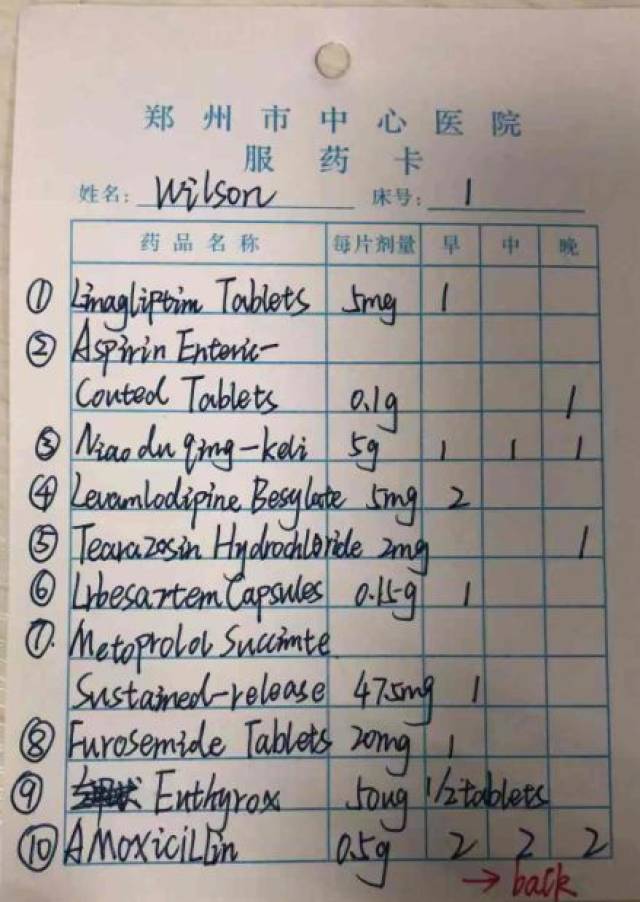 郑州市中心医院
服药卡
姓名: Wilson 床号: 1
药品名称 每片剂量 早 中 晚
① Linagliptim Tablets 5mg 1
② Aspirin Enteric-
Couted Tablets 0.1g 1
③ Niao du qing-keli 5g 1 1 1
④ Levamlodipine Besylate 5mg 2
⑤ Tearazosin Hydrochloride 2mg 1
⑥ Lrbesartem Capsules 0.15g 1
⑦. Metoprolol Succimte
Sustained-release 47.5mg 1
⑧ Furosemide Tablets 20mg 1
⑨ Enthyrox 50ug 1/2 tablets
⑩ AMoxicillin 0.5g 2 2 2
→ back